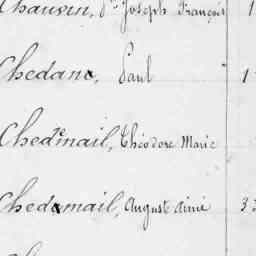 Chauvin, Joseph François 1
Chedane, Paul 1
Chedemail, Théodore Marie
Chedemail, Auguste Aimé 3